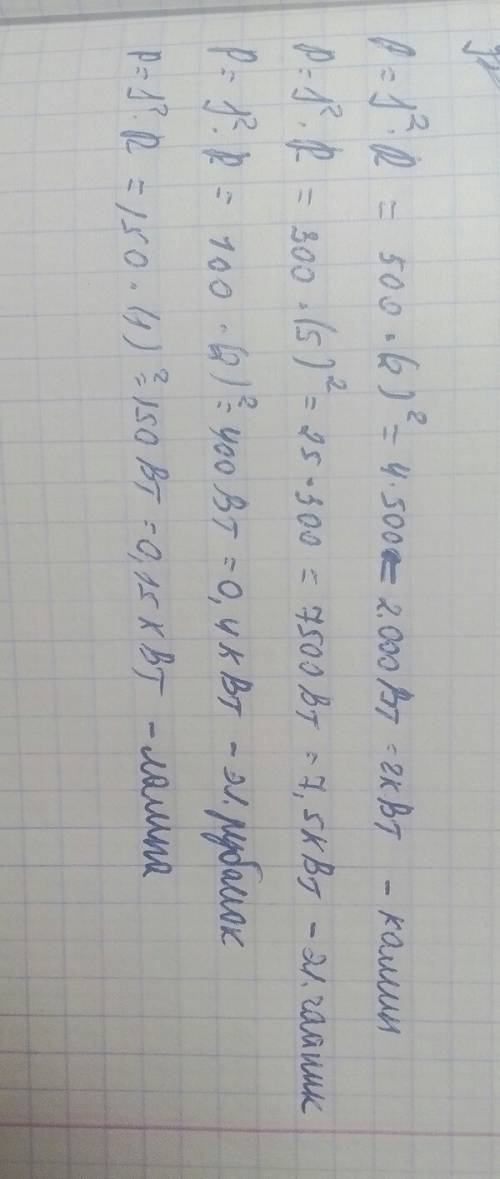 P = J² · R = 500 · (2)² = 4 · 500 = 2.000 Вт = 2 кВт - камин
P = J² · R = 300 · (5)² = 25 · 300 = 7500 Вт = 7,5 кВт - эл. чайник
P = J² · R = 100 · (2)² = 400 Вт = 0,4 кВт - эл.
P = J² · R = 150 · (1)² = 150 Вт = 0,15 кВт - лампа